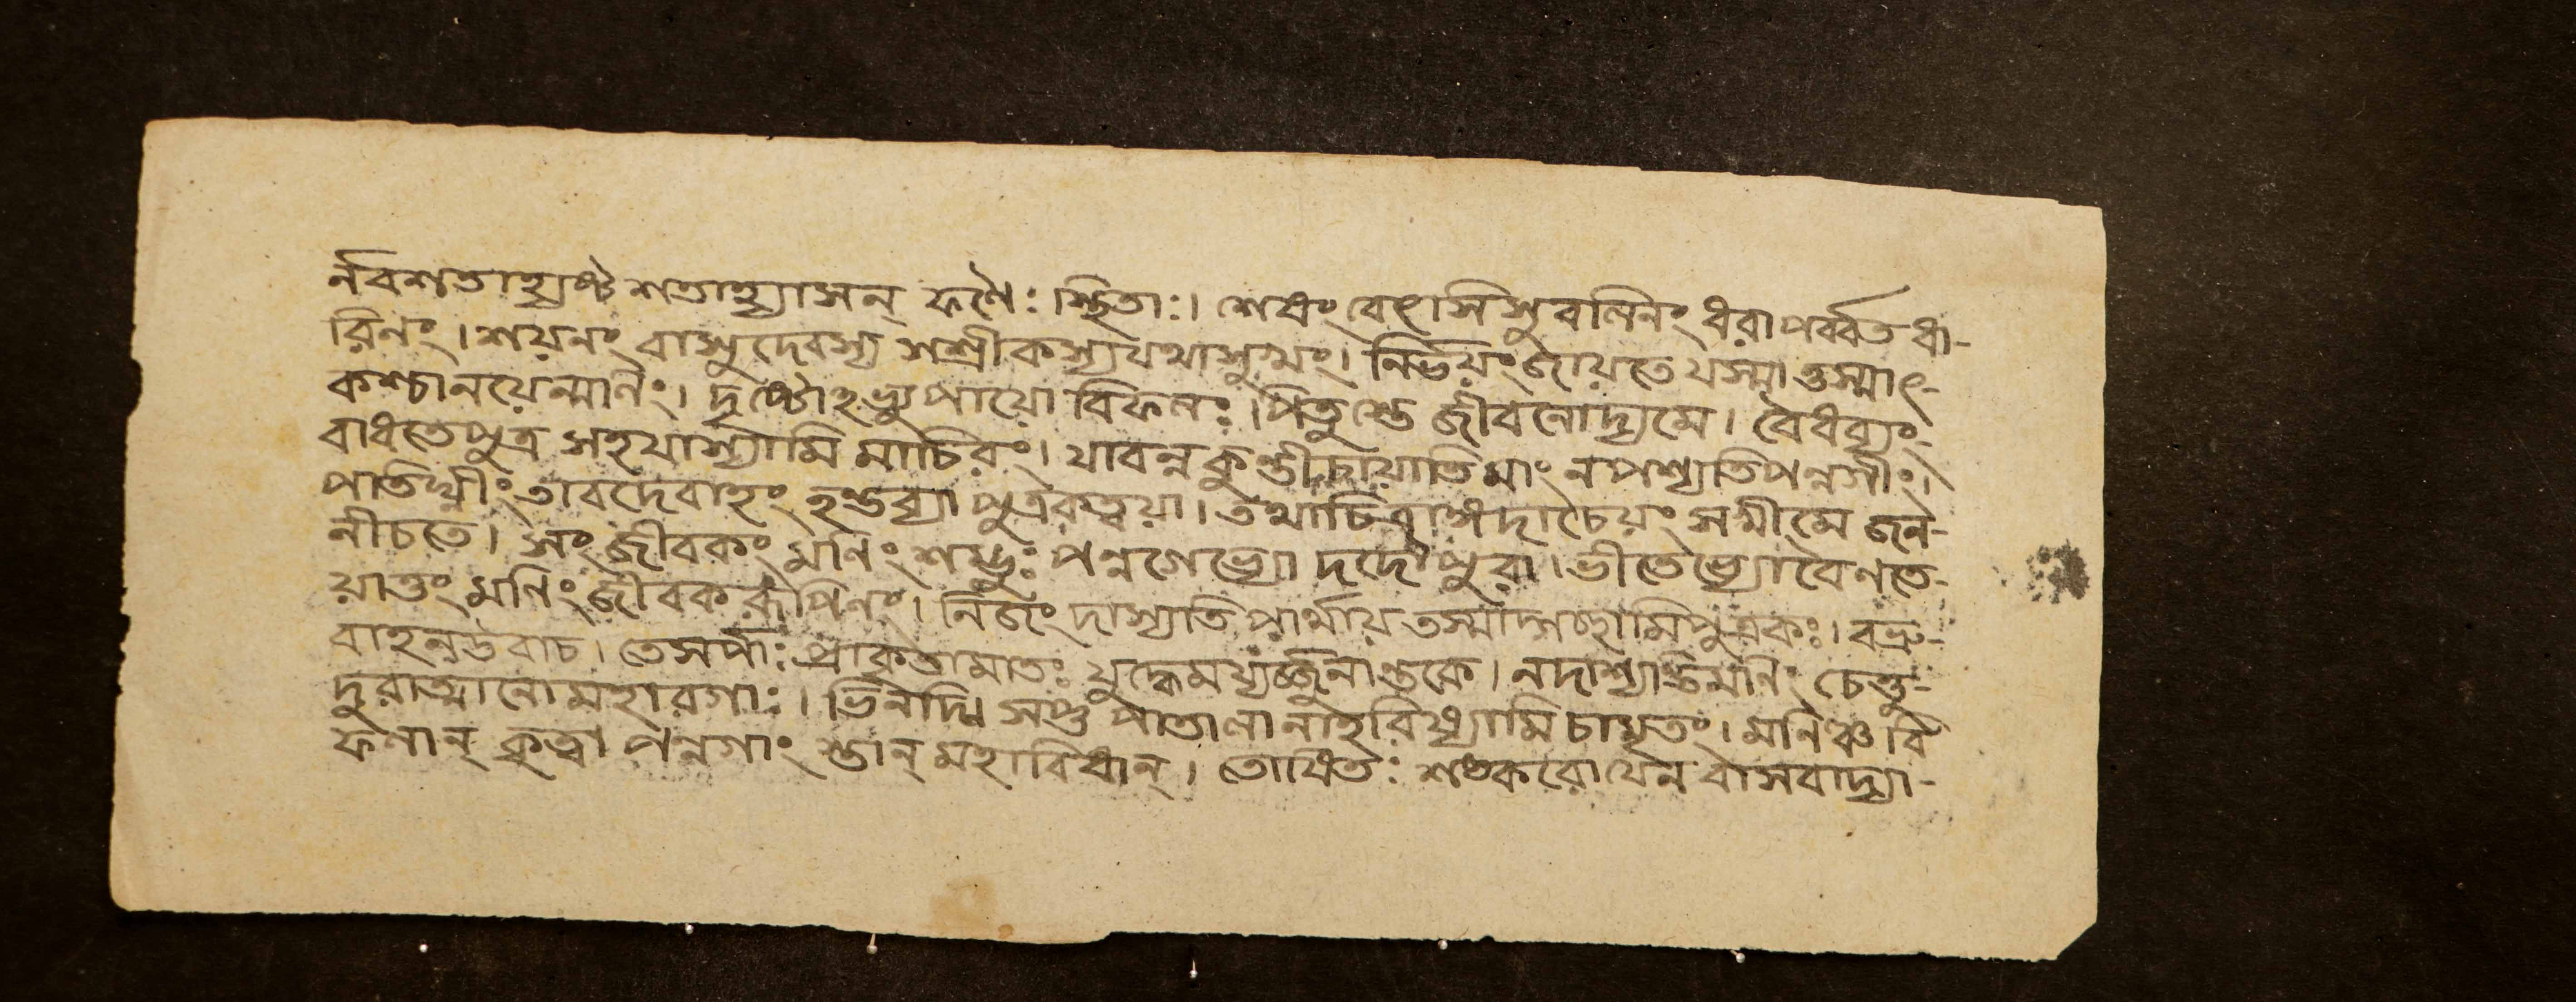 র্নবশতাহ্যষ্ট শতাহ্যাসন্ ফণৈঃ স্থিতাঃ। শেষং বেৎসি সুবলিনং ধরাপর্ব্বত ধা-
রিনং। শয়নং বাসুদেবস্য সশ্রীকস্যযথাসুখং। নির্ভয়ংজায়তে যস্মাত্তস্মাৎ-
কশ্চানয়েন্মনিং। দৃষ্টোহভ্যুপায়ো বিফলঃ। পিতুস্তে জীবনোদ্যমে। বৈধব্যং-
বাধতেপুত্র সহযাস্যামি মাচিরং। যাবন্ন কুন্তীচায়াতি মাং নপশ্যতিপন্নগীং।
পতিঘ্নীং তাবদেবাহং হন্তব্যা পুত্রকত্বয়া। তথাচিত্রাঙ্গদাচেয়ং সমীমে জন-
নীচতে। সংজীবকং মনিং শম্ভুঃ পন্নগেভ্যো দদৌপুরা। ভীতেভ্যোবৈনতে-
য়াত্তং মনিং জীবকরূপিনং। নিজং দাস্যতি পার্থায় তস্মাদ্গচ্ছামিপুত্রকঃ। বভ্রু-
বাহনউবাচ। তেসর্পাঃ প্রাকৃতামাতঃ যুদ্ধেময্যর্জ্জুনান্তকে। নদাস্যন্তিমনিং চেত্তু-
দুরাত্মানোমহোরগাঃ। ভিনদ্মি সপ্ত পাতালানাহরিষ্যামি চামৃতং। মনিঞ্চ বি
ফনান্ কৃত্বা পন্নগাং স্তান্ মহাবিষান্। তোষিতঃ শঙ্করোযেন বাসবাদ্যা-